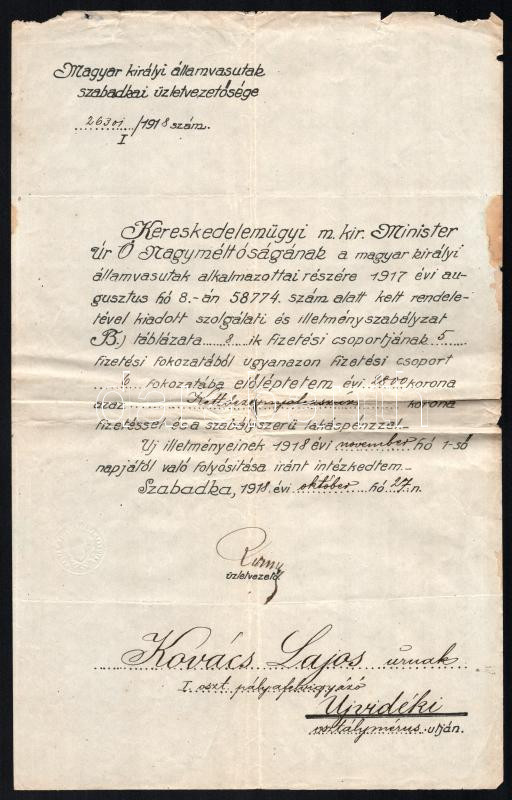 Magyar királyi államvasutak
szabadkai üzletvezetősége
26301/1918 szám.
I
Kereskedelemügyi m. kir. Minister
Úr Ő Nagyméltóságának a magyar királyi
államvasutak alkalmazottai részére 1917 évi au-
gusztus hó 8.-án 58774. szám alatt kelt rendele-
tével kiadott szolgálati és illetményszabályzat
B.) táblázata 8 ik fizetési csoportjának 5
fizetési fokozatából ugyanazon fizetési csoport
6 fokozatába előléptetem évi 2800 korona
azaz Kettőezernyolcszáz korona
fizetéssel és a szabályszerű lakáspénzzel.
Uj illetményeinek 1918 évi november hó 1-ső
napjától való folyósítása iránt intézkedtem.
Szabadka, 1918 évi október hó 27 n.
üzletvezető
Kovács Lajos úrnak
I. oszt. pályafelvigyázó
Ujvidéki
osztálymérnök utján.